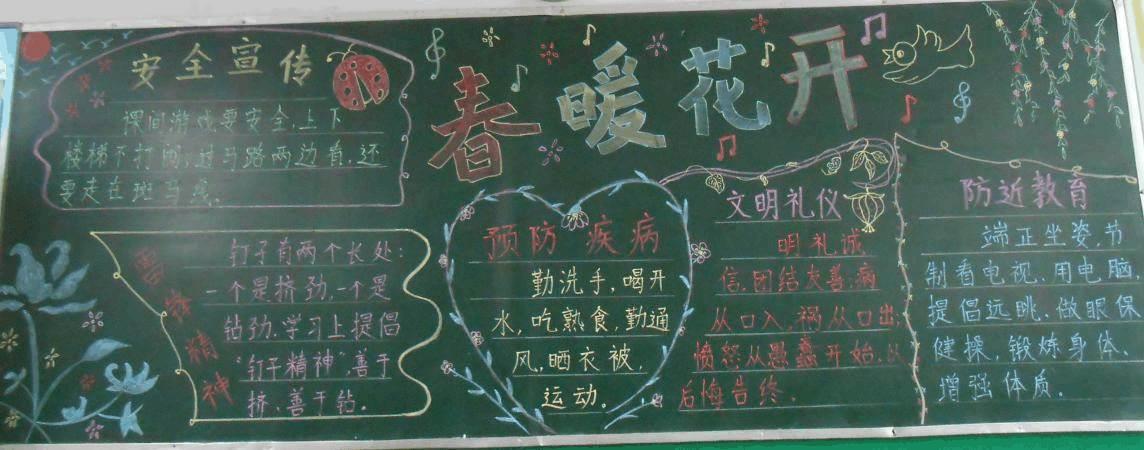 春暖花开
安全宣传
课间游戏要安全,上下
楼梯不打闹,过马路两边看,还
要走在斑马线。
雷锋精神
钉子有两个长处:
一个是挤劲,一个是
钻劲.学习上提倡
“钉子精神”,善于
挤、善于钻。
预防疾病
勤洗手,喝开
水,吃熟食,勤通
风,晒衣被,
运动。
文明礼仪
明礼诚
信,团结友善;病
从口入,祸从口出;
愤怒从愚蠢开始,以
后悔告终.
防近教育
端正坐姿,节
制看电视、用电脑
提倡远眺、做眼保
健操,锻炼身体、
增强体质.